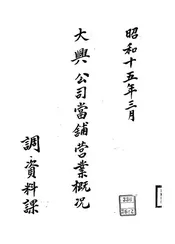 昭和十五年三月
大興公司當舖営業概況
調資料課